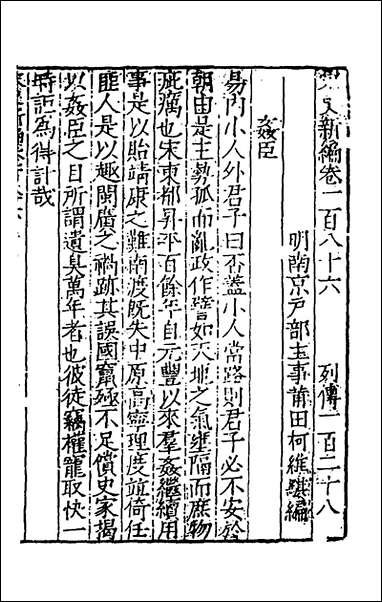 宋史新編卷一百八十六　列傳一百二十八
明南京戶部主事莆田柯維騏編
姦臣
易內小人外君子曰否蓋小人當路則君子必不安於
朝由是主勢孤而亂政作譬如天地之氣壅隔而庶物
疵癘也宋東都昇平百餘年自元豐以來羣姦繼續用
事是以貽靖康之難南渡既失中原高寧理度竝倚任
匪人是以趣閩廣之禍跡其誤國竄殛不足償史家揭
以姦臣之目所謂遺臭萬年者也彼徒竊權寵取快一
時詎爲得計哉